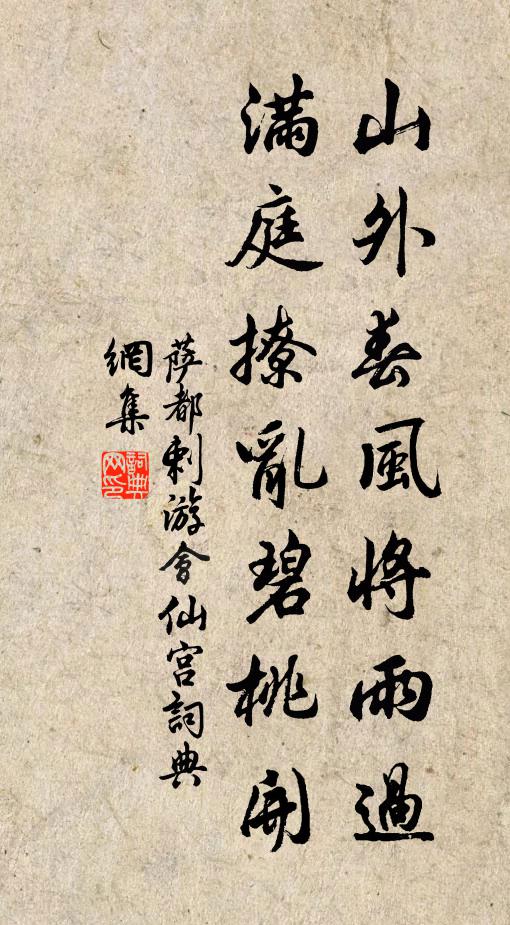 山外春風將雨過
滿庭撩亂碧桃開
薩都剌游會仙宮詞典
網集
詞典
网印